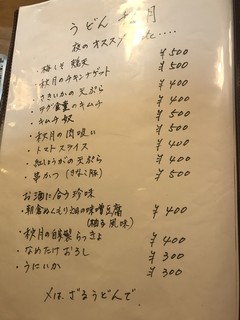 うどん 秋月
夜のオススメ
・梅しそ 鶏天 ¥500
・秋月のチキンナゲット ¥500
・さきいかの天ぷら ¥400
・キムチ ¥400
・キムチ奴 ¥400
・秋月の肉吸い ¥500
・トマトスライス ¥400
・紅しょうがの天ぷら ¥500
・串かつ ¥500
お酒に合う珍味
・朝倉ぬくもり工房の味噌豆腐 ¥400
(柚子風味)
・秋月の自家製らっきょ ¥400
・なめたけおろし ¥300
・うにいか ¥300
〆は、ざるうどんで。